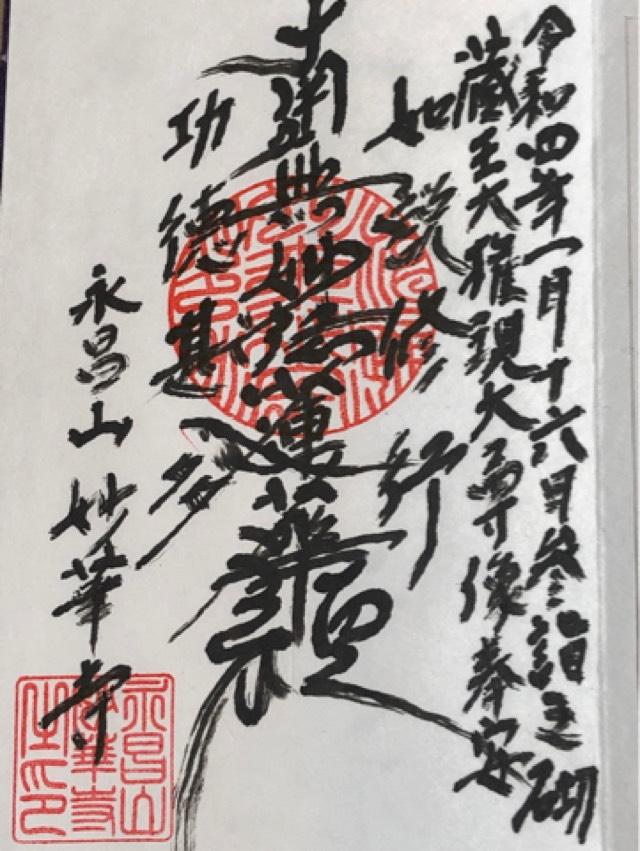 令和四年一月十六日参詣之砌
蔵王大権現大尊像奉安
如説修行
南無妙法蓮華経
功徳甚多
永昌山妙華寺
永昌山
妙華寺
之印